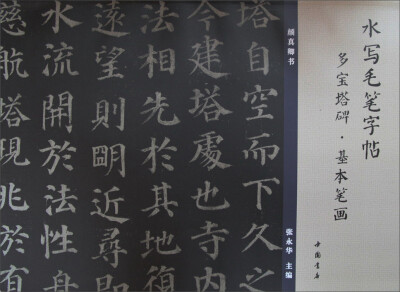 水写毛笔字帖
多宝塔碑·基本笔画
中国书店
颜真卿书
张永华 主编
塔自空而下久之
今建塔處也寺内
法相先於其地復
遠望則眀近尋即
水流開於法性舟
慈航塔現兆於有